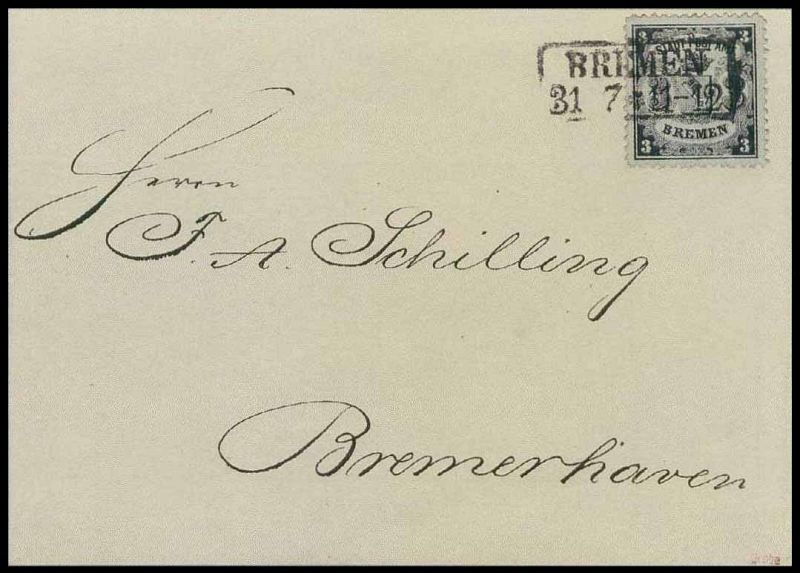 3 3
STADT POST AMT
BREMEN
31 7 11-12
BREMEN
3 3
Herrn
F. A. Schilling
Bremerhaven